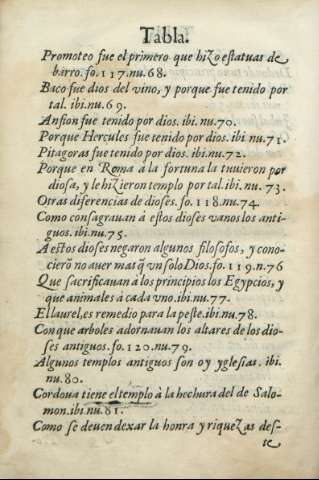 Tabla.
Promoteo fue el primero que hizo estatuas de
barro. fo. 117. nu. 68.
Baco fue dios del vino, y porque fue tenido por
tal. ibi. nu. 69.
Anfion fue tenido por dios. ibi. nu. 70.
Porque Hercules fue tenido por dios. ibi. nu. 71.
Pitagoras fue tenido por dios. ibi. nu. 72.
Porque en Roma à la fortuna la tuuieron por
diosa, y le hizieron templo por tal. ibi. nu. 73.
Otras diferencias de dioses. fo. 118. nu. 74.
Como consagrauan à estos dioses vanos los anti-
guos. ibi. nu. 75.
A estos dioses negaron algunos filosofos, y cono-
cierõ no auer mas q̃ vn solo Dios. fo. 119. n. 76
Que sacrificauan à los principios los Egypcios, y
que animales à cada vno. ibi. nu. 77.
El laurel, es remedio para la peste. ibi. nu. 78.
Con que arboles adornauan los altares de los dio-
ses antiguos. fo. 120. nu. 79.
Algunos templos antiguos son oy yglesias. ibi.
nu. 80.
Cordoua tiene el templo à la hechura del de Salo-
mon. ibi. nu. 81.
Como se deuen dexar la honra y riquezas des-
te